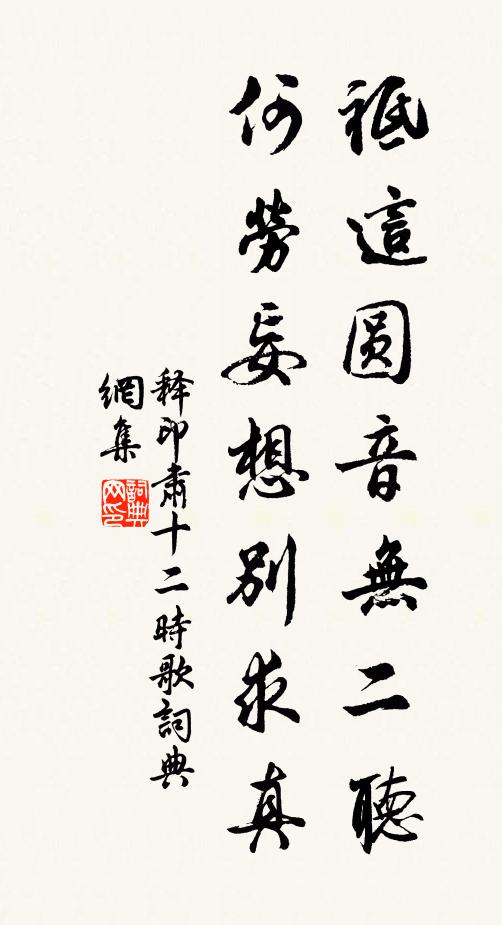 祗這圓音無二聽
何勞妄想別求真
释印肅十二時歌詞典
網集
詞典网印